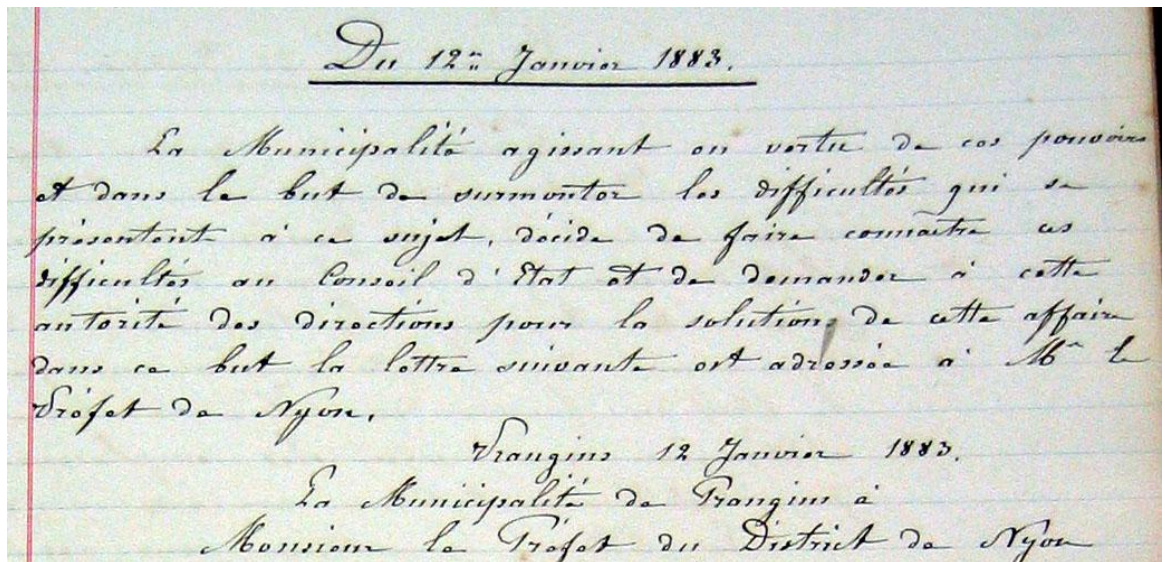 Du 12me Janvier 1883.
La Municipalité agissant en vertu de ces pouvoirs
et dans le but de surmonter les difficultés qui se
présentent à ce sujet, décide de faire connaître ces
difficultés au Conseil d'Etat et de demander à cette
autorité des directions pour la solution de cette affaire
dans ce but la lettre suivante est adressée à Mr le
Préfet de Nyon.
Prangins 12 Janvier 1883.
La Municipalité de Prangins à
Monsieur le Préfet du District de Nyon